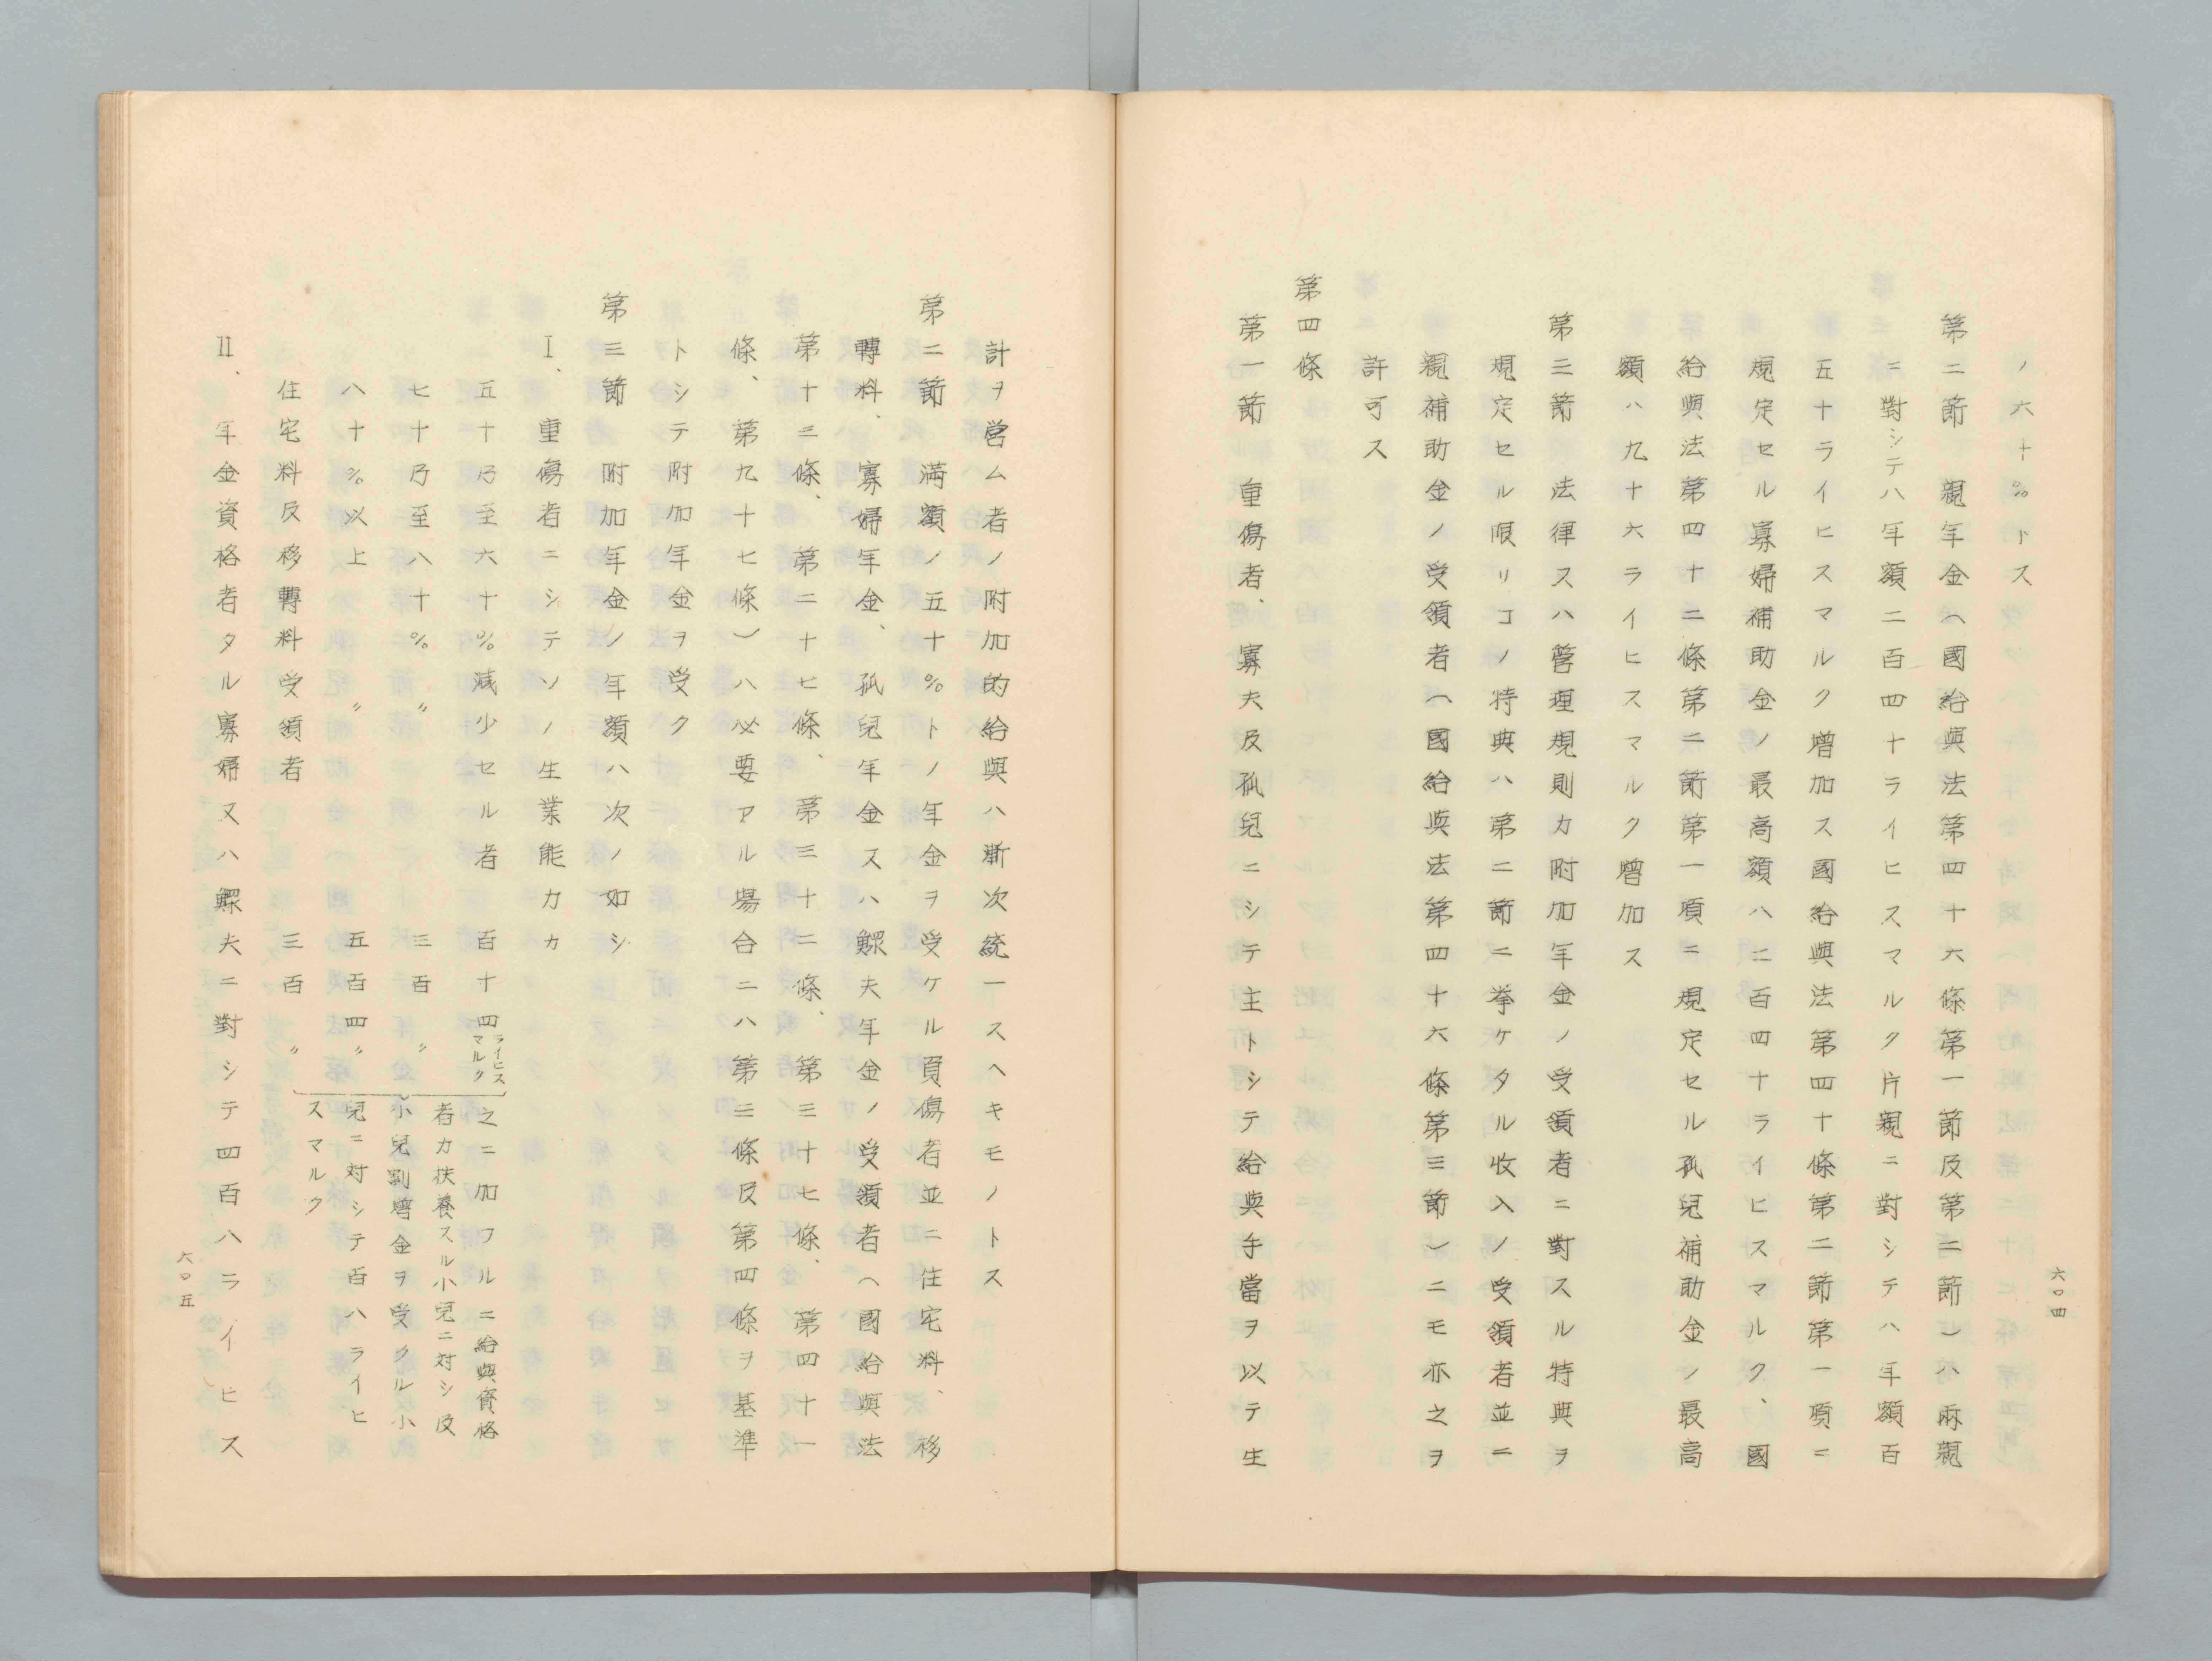 ノ六十％トス
第二節　親年金（國給與法第四十六條第一節及第二節）ハ兩親
ニ對シテハ年額二百四十ライヒスマルク片親ニ對シテハ年額百
五十ライヒスマルク增加ス國給與法第四十條第二節第一項ニ
規定セル寡婦補助金ノ最高額ハ二百四十ライヒスマルク、國
給與法第四十二條第二節第一項ニ規定セル孤兒補助金ノ最高
額ハ九十六ライヒスマルク增加ス
第三節　法律又ハ管理規則カ附加年金ノ受領者ニ對スル特典ヲ
規定セル限リコノ特典ハ第二節ニ擧ケタル收入ノ受領者並ニ
親補助金ノ受領者（國給與法第四十六條第三節）ニモ亦之ヲ
許可ス
第四條
第一節　重傷者、寡夫及孤兒ニシテ主トシテ給與手當ヲ以テ生
六〇四
計ヲ營ム者ノ附加的給與ハ漸次統一スヘキモノトス
第二節　滿額ノ五十％トノ年金ヲ受ケル頁傷者並ニ住宅料、移
轉料、寡婦年金、孤兒年金又ハ鰥夫年金ノ受領者（國給與法
第十三條、第二十七條、第三十二條、第三十七條、第四十一
條、第九十七條）ハ必要アル場合ニハ第三條及第四條ヲ基準
トシテ附加年金ヲ受ク
第三節　附加年金ノ年額ハ次ノ如シ
I、重傷者ニシテソノ生業能力カ
五十乃至六十％減少セル者　百十四ライヒスマルク
七十乃至八十％　〃　三百　〃
八十％以上　〃　五百四〃
住宅料及移轉料受領者　三百　〃
之ニ加フルニ給與資格
者カ扶養スル小兒ニ対シ及
小兒割增金ヲ受クル小
兒ニ対シテ百八ライヒ
スマルク
II、年金資格者タル寡婦又ハ鰥夫ニ對シテ四百八ライヒス
六〇五